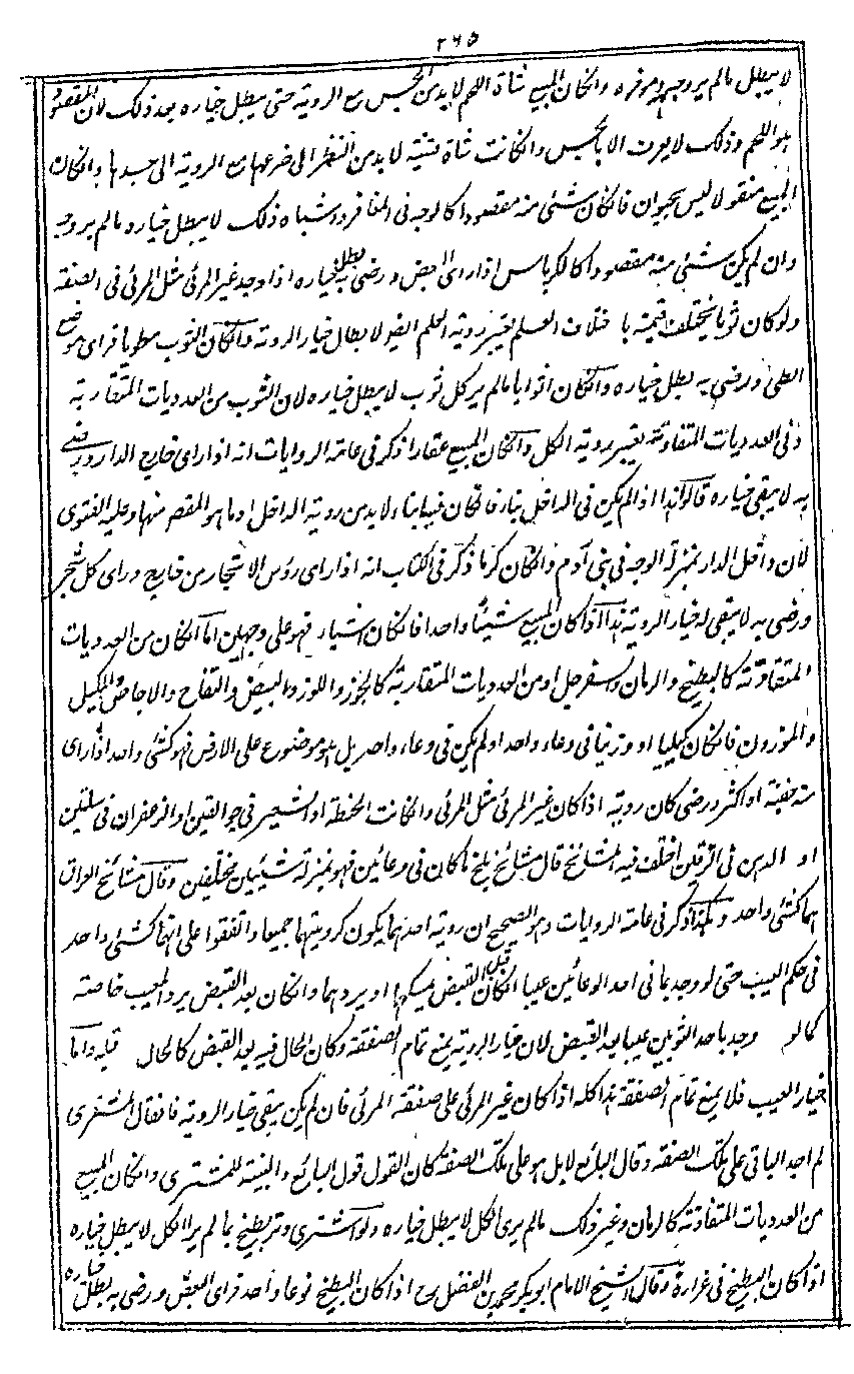 ٢٦٥
لا يبطل مالم ير وجهه وموخره وانكان المبيع شاة اللحم لا بد من الجس مع الروية حتى يبطل خياره بعد ذلك لان المقصود
هو اللحم وذلك لا يعرف الا بالجس وانكانت شاة قنية لا بد من النظر الى ضرعها مع الروية الى جسدها وانكان
المبيع منقولا ليس بحيوان فانكان شئ منه مقصودا كالوجه فى المغافر واشباه ذلك لا يبطل خياره مالم ير وجهه
وان لم يكن شئ منه مقصودا كالكرباس اذا راى البعض ورضى به بطل خياره اذا وجد غير المرئى مثل المرئى فى الصفة
ولو كان ثوبا يختلف قيمته باختلاف العلم يعتبر روية العلم ايضا لابطال خيار الروية وانكان الثوب مطويا فراى موضع
الطى ورضى به بطل خياره وانكان اثوابا مالم ير كل ثوب لا يبطل خياره لان الثوب من العدديات المتقاربة
وفى العدديات المتفاوتة يعتبر روية الكل وانكان المبيع عقارا ذكر فى عامة الروايات انه اذا راى خارج الدار ورضى
به لا يبقى خياره قالوا هذا اذا لم يكن فى الداخل بناء فانكان فيها بناء لا بد من روية الداخل او ما هو المقصود منها وعليه الفتوى
لان داخل الدار بمنزلة الوجه فى بنى آدم وانكان كرما ذكر فى الكتاب انه اذا راى رؤس الاشجار من خارج وراى كل شجر
ورضى به لا يبقى له خيار الروية هذا اذا كان المبيع شيئا واحدا فانكان اشياء فهو على وجهين اما انكان من العدديات
المتفاوتة كالبطيخ والرمان والسفرجل او من العدديات المتقاربة كالجوز واللوز والبيض والتفاح والاجاص والمكيل
والموزون فانكان كيليا او وزنيا فى وعاء واحد او لم يكن فى وعاء واحد بل هو موضوع على الارض فهو كشئ واحد اذا راى
منه حفنة او اكثر ورضى كان روية اذا كان غير المرئى مثل المرئى وانكانت الحنطة او الشعير فى جوالقين او الزعفران فى سلتين
او الدهن فى الزقين اختلف فيه المشائخ قال مشائخ بلخ ما كان فى وعائين فهو بمنزلة شيئين مختلفين وقال مشائخ العراق
هما كشئ واحد وهكذا ذكر فى عامة الروايات وهو الصحيح ان روية احدهما يكون كرويتهما جميعا واتفقوا على انهما كشئ واحد
فى حكم العيب حتى لو وجد بما فى احد الوعائين عيبا انكان قبل القبض يمسكهما او يردهما وانكان بعد القبض يرد المعيب خاصة
كما لو وجد باحد الثوبين عيبا بعد القبض لان خيار الروية يمنع تمام الصفقة وكان الحال فيه بعد القبض كالحال قبله واما
خيار العيب فلا يمنع تمام الصفقة هذا كله اذا كان غير المرئى على صفة المرئى فان لم يكن يبقى خيار الروية فان قال المشترى
لم اجد الباقى على تلك الصفة وقال البائع لا بل هو على تلك الصفة كان القول قول البائع والبينة للمشترى وانكان المبيع
من العدديات المتفاوتة كالرمان وغير ذلك مالم يرى الكل لا يبطل خياره ولو اشترى وقر بطيخ مالم ير الكل لا يبطل خياره
اذا كان البطيخ فى غرارة وقال الشيخ الامام ابو بكر محمد بن الفضل رح اذا كان البطيخ نوعا واحد فراى البعض ورضى به بطل خياره